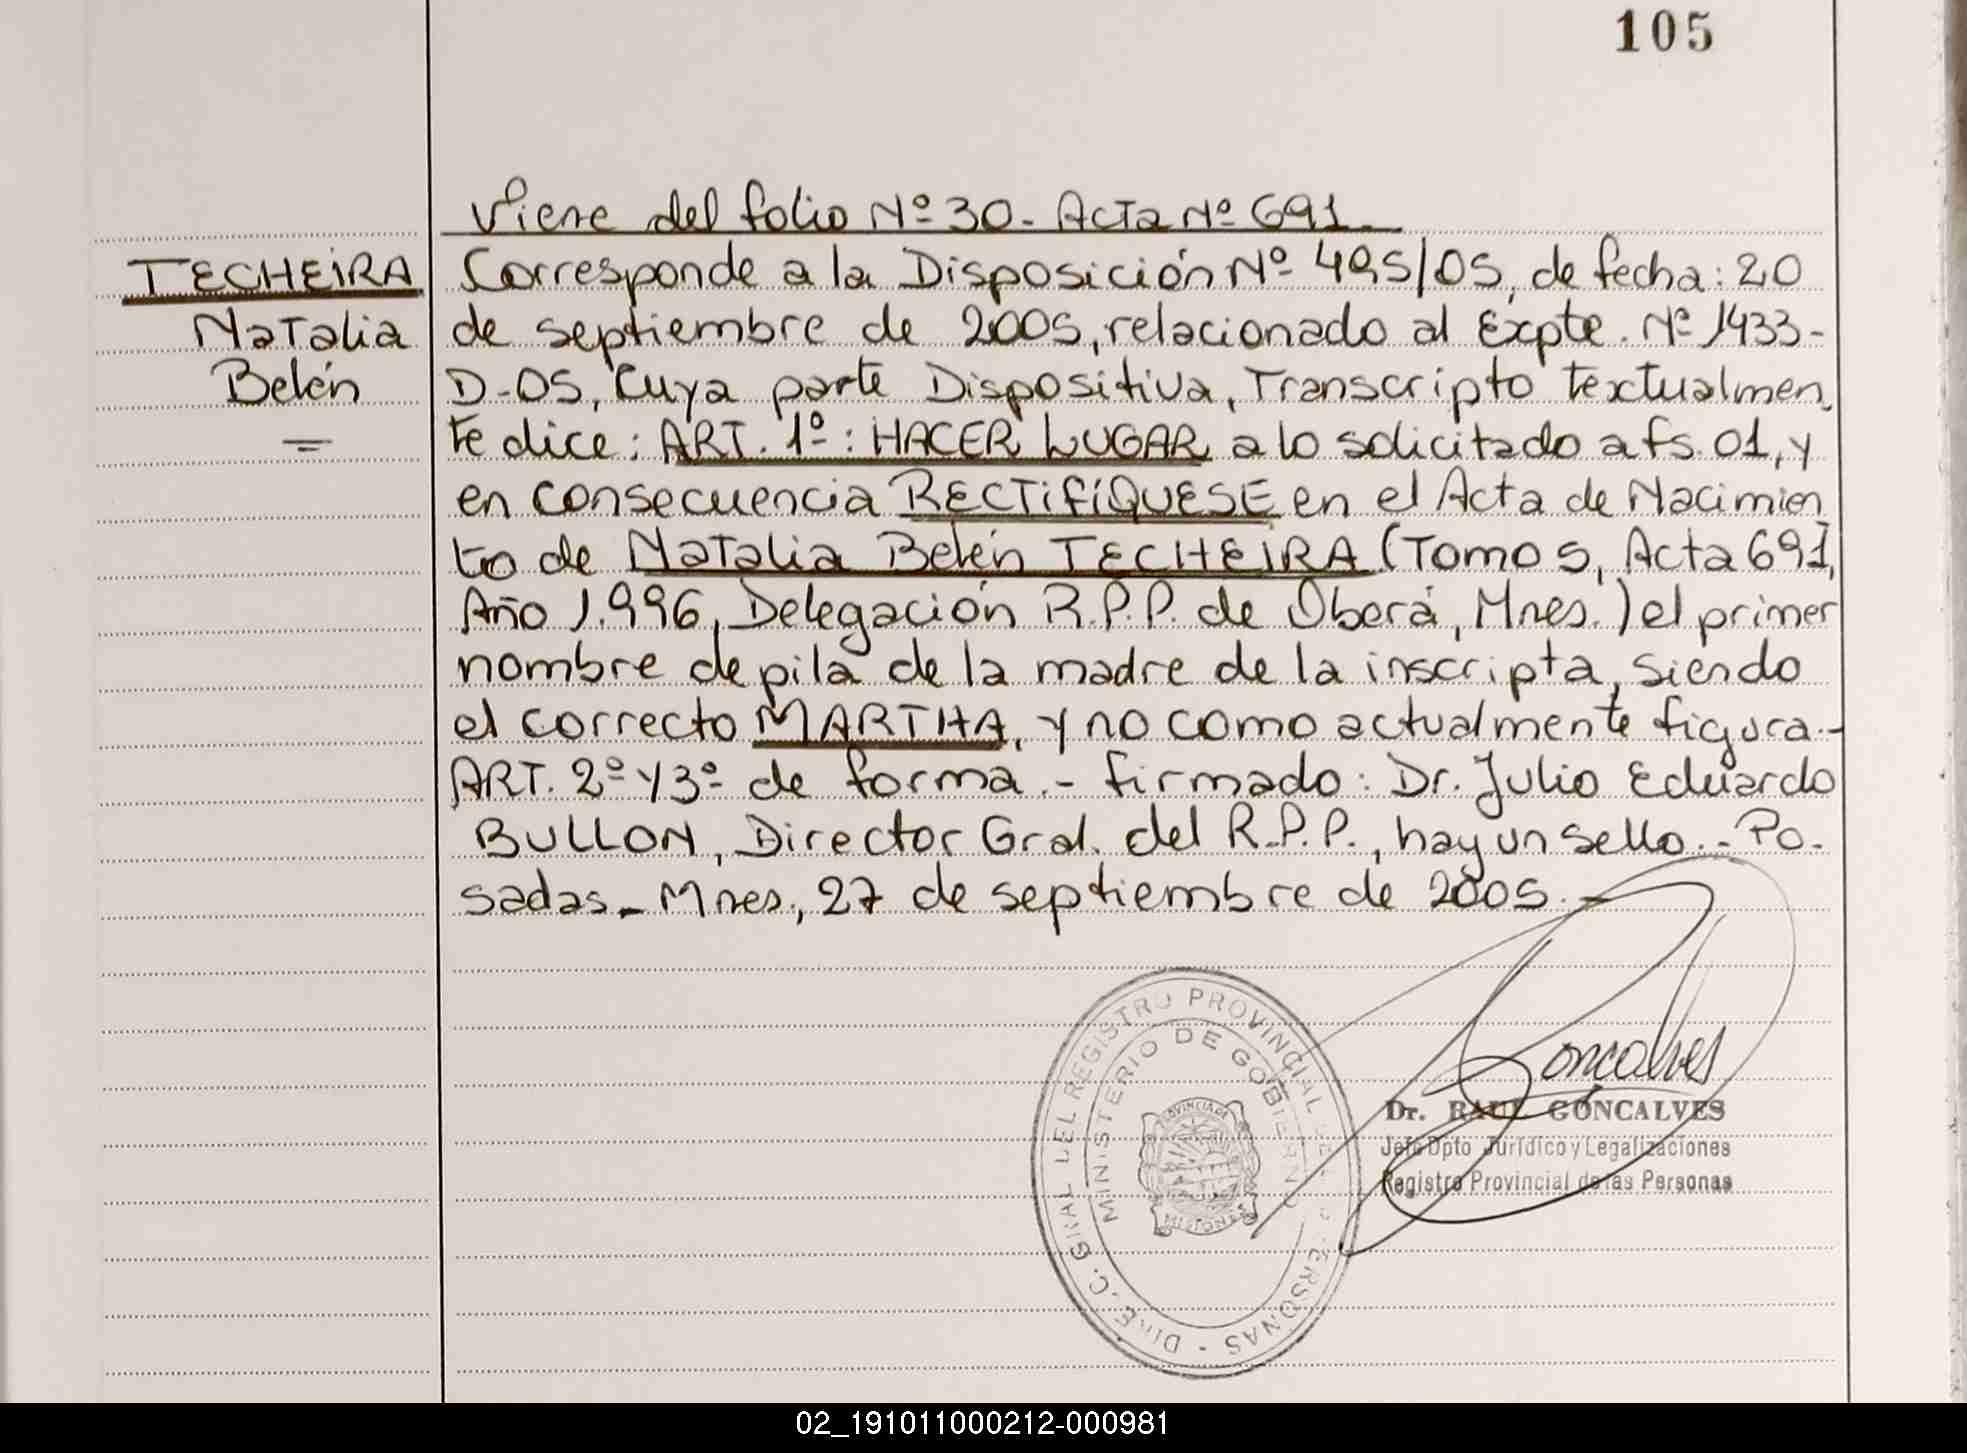 105
Viene del folio Nº 30- Acta Nº 691.-
TECHEIRA
Natalia
Belén
=
Corresponde a la Disposición Nº 495/05, de fecha: 20
de septiembre de 2005, relacionado al Expte. Nº 1433-
D-05, Cuya parte Dispositiva, Transcripto Textualmen
te dice: ART. 1º: HACER LUGAR a lo solicitado a fs. 01, y
en consecuencia RECTIFÍQUESE en el Acta de Nacimien
to de Natalia Belén TECHEIRA (Tomo 5, Acta 691,
Año 1.996, Delegación R.P.P. de Oberá, Mnes.) el primer
nombre de pila de la madre de la inscripta, siendo
el correcto MARTHA, y no como actualmente figura.-
ART. 2º y 3º de forma.- firmado: Dr. Julio Eduardo
BULLON, Director Gral. del R.P.P., hay un sello.- Po-
sadas- Mnes., 27 de septiembre de 2005.-
GRAL DEL REGISTRO PROVINCIAL DE LAS PERSONAS -
MINISTERIO DE GOBIERNO
PROVINCIA DE
MISIONES
Goncalves
Dr. RAUL GONCALVES
Jefe Dpto Jurídico y Legalizaciones
Registro Provincial de las Personas
02_191011000212-000981